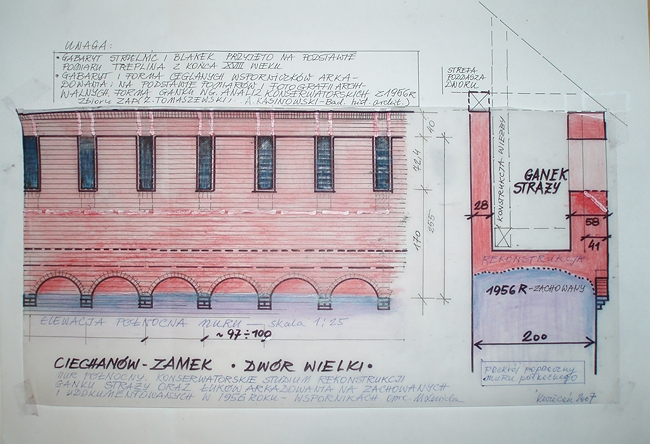 UWAGA:
• GABARYT STRZELNIC I BLANEK PRZYJĘTO NA PODSTAWIE
POMIARU TREPLINA Z KOŃCA XVIII WIEKU.
• GABARYT I FORMA CEGLANYCH WSPORNICZKÓW ARKA-
DOWANIA NA PODSTAWIE POMIARÓW I FOTOGRAFII ARCH-
WALNYCH. FORMA GANKU WG. ANALIZ KONSERWATORSKICH Z 1956R
zbioru ZAP (Z. TOMASZEWSKI i A. KASINOWSKI - Bad. hist. archit.)
STREFA
PODDASZA
DWORU
40
72,4
170
255
KONSTRUKCJA WIĘŹBY
GANEK
STRAŻY
28
58
41
REKONSTRUKCJA
1956 R - ZACHOWANY
200
ELEWACJA PÓŁNOCNA MURU — skala 1:25
~ 97÷100
CIECHANÓW - ZAMEK • DWÓR WIELKI •
MUR PÓŁNOCNY. KONSERWATORSKIE STUDIUM REKONSTRUKCJI
GANKU STRAŻY ORAZ ŁUKÓW ARKADOWANIA NA ZACHOWANYCH
I UDOKUMENTOWANYCH W 1956 ROKU - WSPORNIKACH
Przekrój poprzeczny
muru północnego
kwiecień 2007